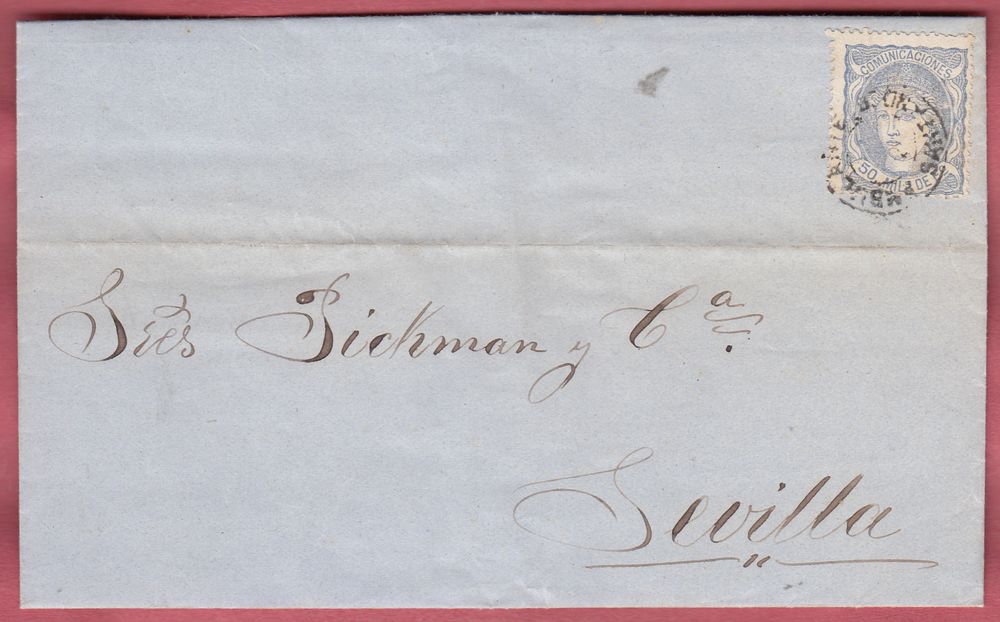 COMUNICACIONES
50 MILS DE E
AMBULANTE SANTAND
Sres Pickman y Cª
Sevilla